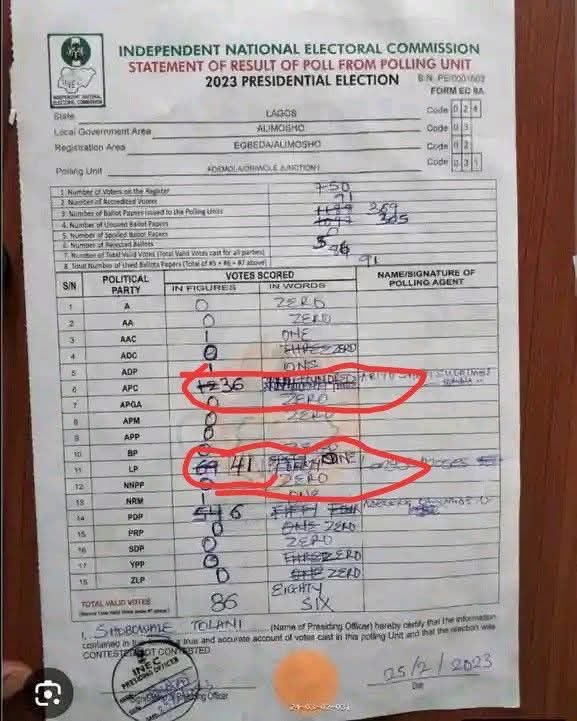 INEC
INDEPENDENT NATIONAL ELECTORAL COMMISSION
INDEPENDENT NATIONAL ELECTORAL COMMISSION
STATEMENT OF RESULT OF POLL FROM POLLING UNIT
2023 PRESIDENTIAL ELECTION
FORM EC 8A
State LAGOS Code 024
Local Government Area ALIMOSHO Code 03
Registration Area EGBEDA/ALIMOSHO Code 02
Polling Unit JUNCTION I Code
1. Number of Voters on the Register 750
2. Number of Accredited Voters 91
3. Number of Ballot Papers issued to the Polling Units 369
4. Number of Unused Ballot Papers 305
5. Number of Spoiled Ballot Papers 0
6. Number of Rejected Ballots 5
7. Number of Total Valid Votes (Total Valid Votes cast for all parties)
8. Total Number of Used Ballots Papers (Total of #5 + #6 + #7 above) 91
S/N POLITICAL PARTY VOTES SCORED NAME/SIGNATURE OF POLLING AGENT
IN FIGURES IN WORDS
1 A 0 ZERO
2 AA 0 ZERO
3 AAC 1 ONE
4 ADC 0 THREE ZERO
5 ADP 1 ONE
6 APC 12 36
7 APGA 0 ZERO
8 APM 0 ZERO
9 APP 0
10 BP 0 ZERO
11 LP 69 41 ONE
12 NNPP 0 ZERO
13 NRM 1 ONE
14 PDP 54 6 FIFTY FOUR
15 PRP 0 ONE ZERO
16 SDP 0 ZERO
17 YPP 0 THREE ZERO
18 ZLP 0 ONE ZERO
TOTAL VALID VOTES 86 EIGHTY SIX
I, SHOBOWALE TOLANI (Name of Presiding Officer) hereby certify that the information
contained in true and accurate account of votes cast in this polling Unit and that the election was
CONTESTED/NOT CONTESTED.
INEC
PRESIDING OFFICER
Presiding Officer
25/2/2023
Date